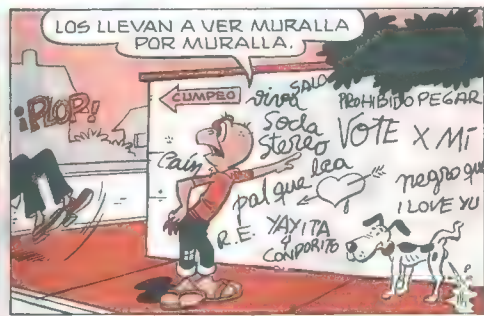 LOS LLEVAN A VER MURALLA
POR MURALLA.
¡PLOP!
CUMPEO
viva
SALO
Soda
Stereo
PROHIBIDO PEGAR
VOTE X MÍ
pal que lea
negro que
I LOVE YU
R.E.
YAYITA
Y
CONDORITO